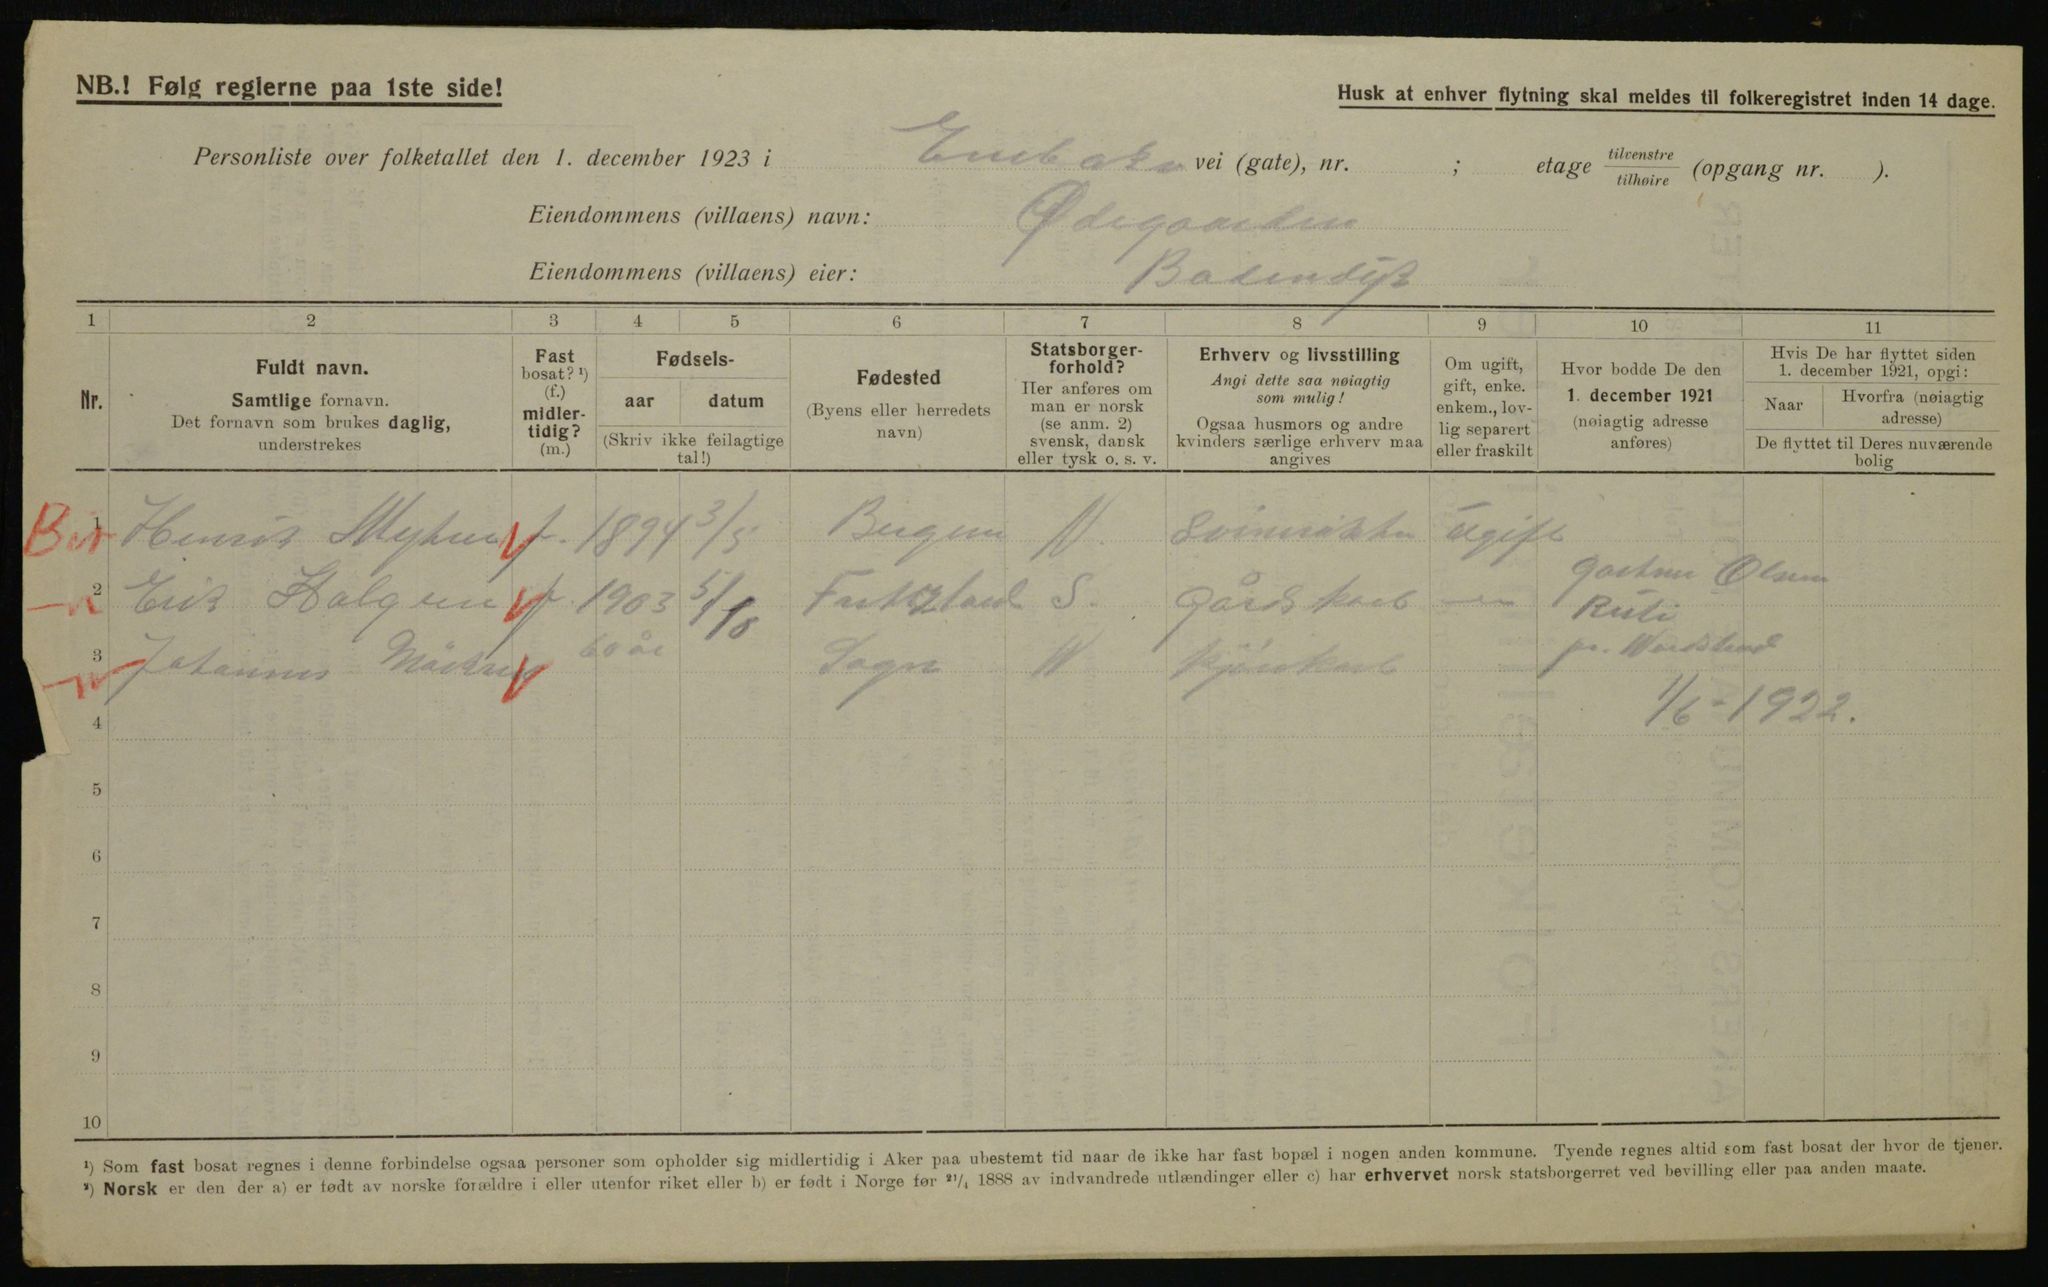 NB.! Følg reglerne paa 1ste side!
Husk at enhver flytning skal meldes til folkeregistret inden 14 dage.
Personliste over folketallet den 1. december 1923 i vei (gate), nr. ; etage tilvenstre/tilhøire (opgang nr. ).
Eiendommens (villaens) navn: Ødegaarden
Eiendommens (villaens) eier:
1 2 3 4 5 6 7 8 9 10 11
Nr.
Fuldt navn.
Samtlige fornavn.
Det fornavn som brukes daglig,
understrekes
Fast
bosat? ¹)
(f.)
midler-
tidig?
(m.)
Fødsels-
aar datum
(Skriv ikke feilagtige
tal!)
Fødested
(Byens eller herredets
navn)
Statsborger-
forhold?
Her anføres om
man er norsk
(se anm. 2)
svensk, dansk
eller tysk o. s. v.
Erhverv og livsstilling
Angi dette saa nøiagtig
som mulig!
Ogsaa husmors og andre
kvinders særlige erhverv maa
angives
Om ugift,
gift, enke.
enkem., lov-
lig separert
eller fraskilt
Hvor bodde De den
1. december 1921
(nøiagtig adresse
anføres)
Hvis De har flyttet siden
1. december 1921, opgi:
Naar
Hvorfra (nøiagtig
adresse)
De flyttet til Deres nuværende
bolig
1 Henrik f. 1894 3/5 Bergen N. Ugift
2 Erik f. 1903 5/10 S. Gårdskarl Gartner Olsen
3 Johannes 60 år Sogn N
1/6-1922.
4
5
6
7
8
9
10
¹) Som fast bosat regnes i denne forbindelse ogsaa personer som opholder sig midlertidig i Aker paa ubestemt tid naar de ikke har fast bopæl i nogen anden kommune. Tyende regnes altid som fast bosat der hvor de tjener.
²) Norsk er den der a) er født av norske forældre i eller utenfor riket eller b) er født i Norge før ²¹/₄ 1888 av indvandrede utlændinger eller c) har erhvervet norsk statsborgerret ved bevilling eller paa anden maate.